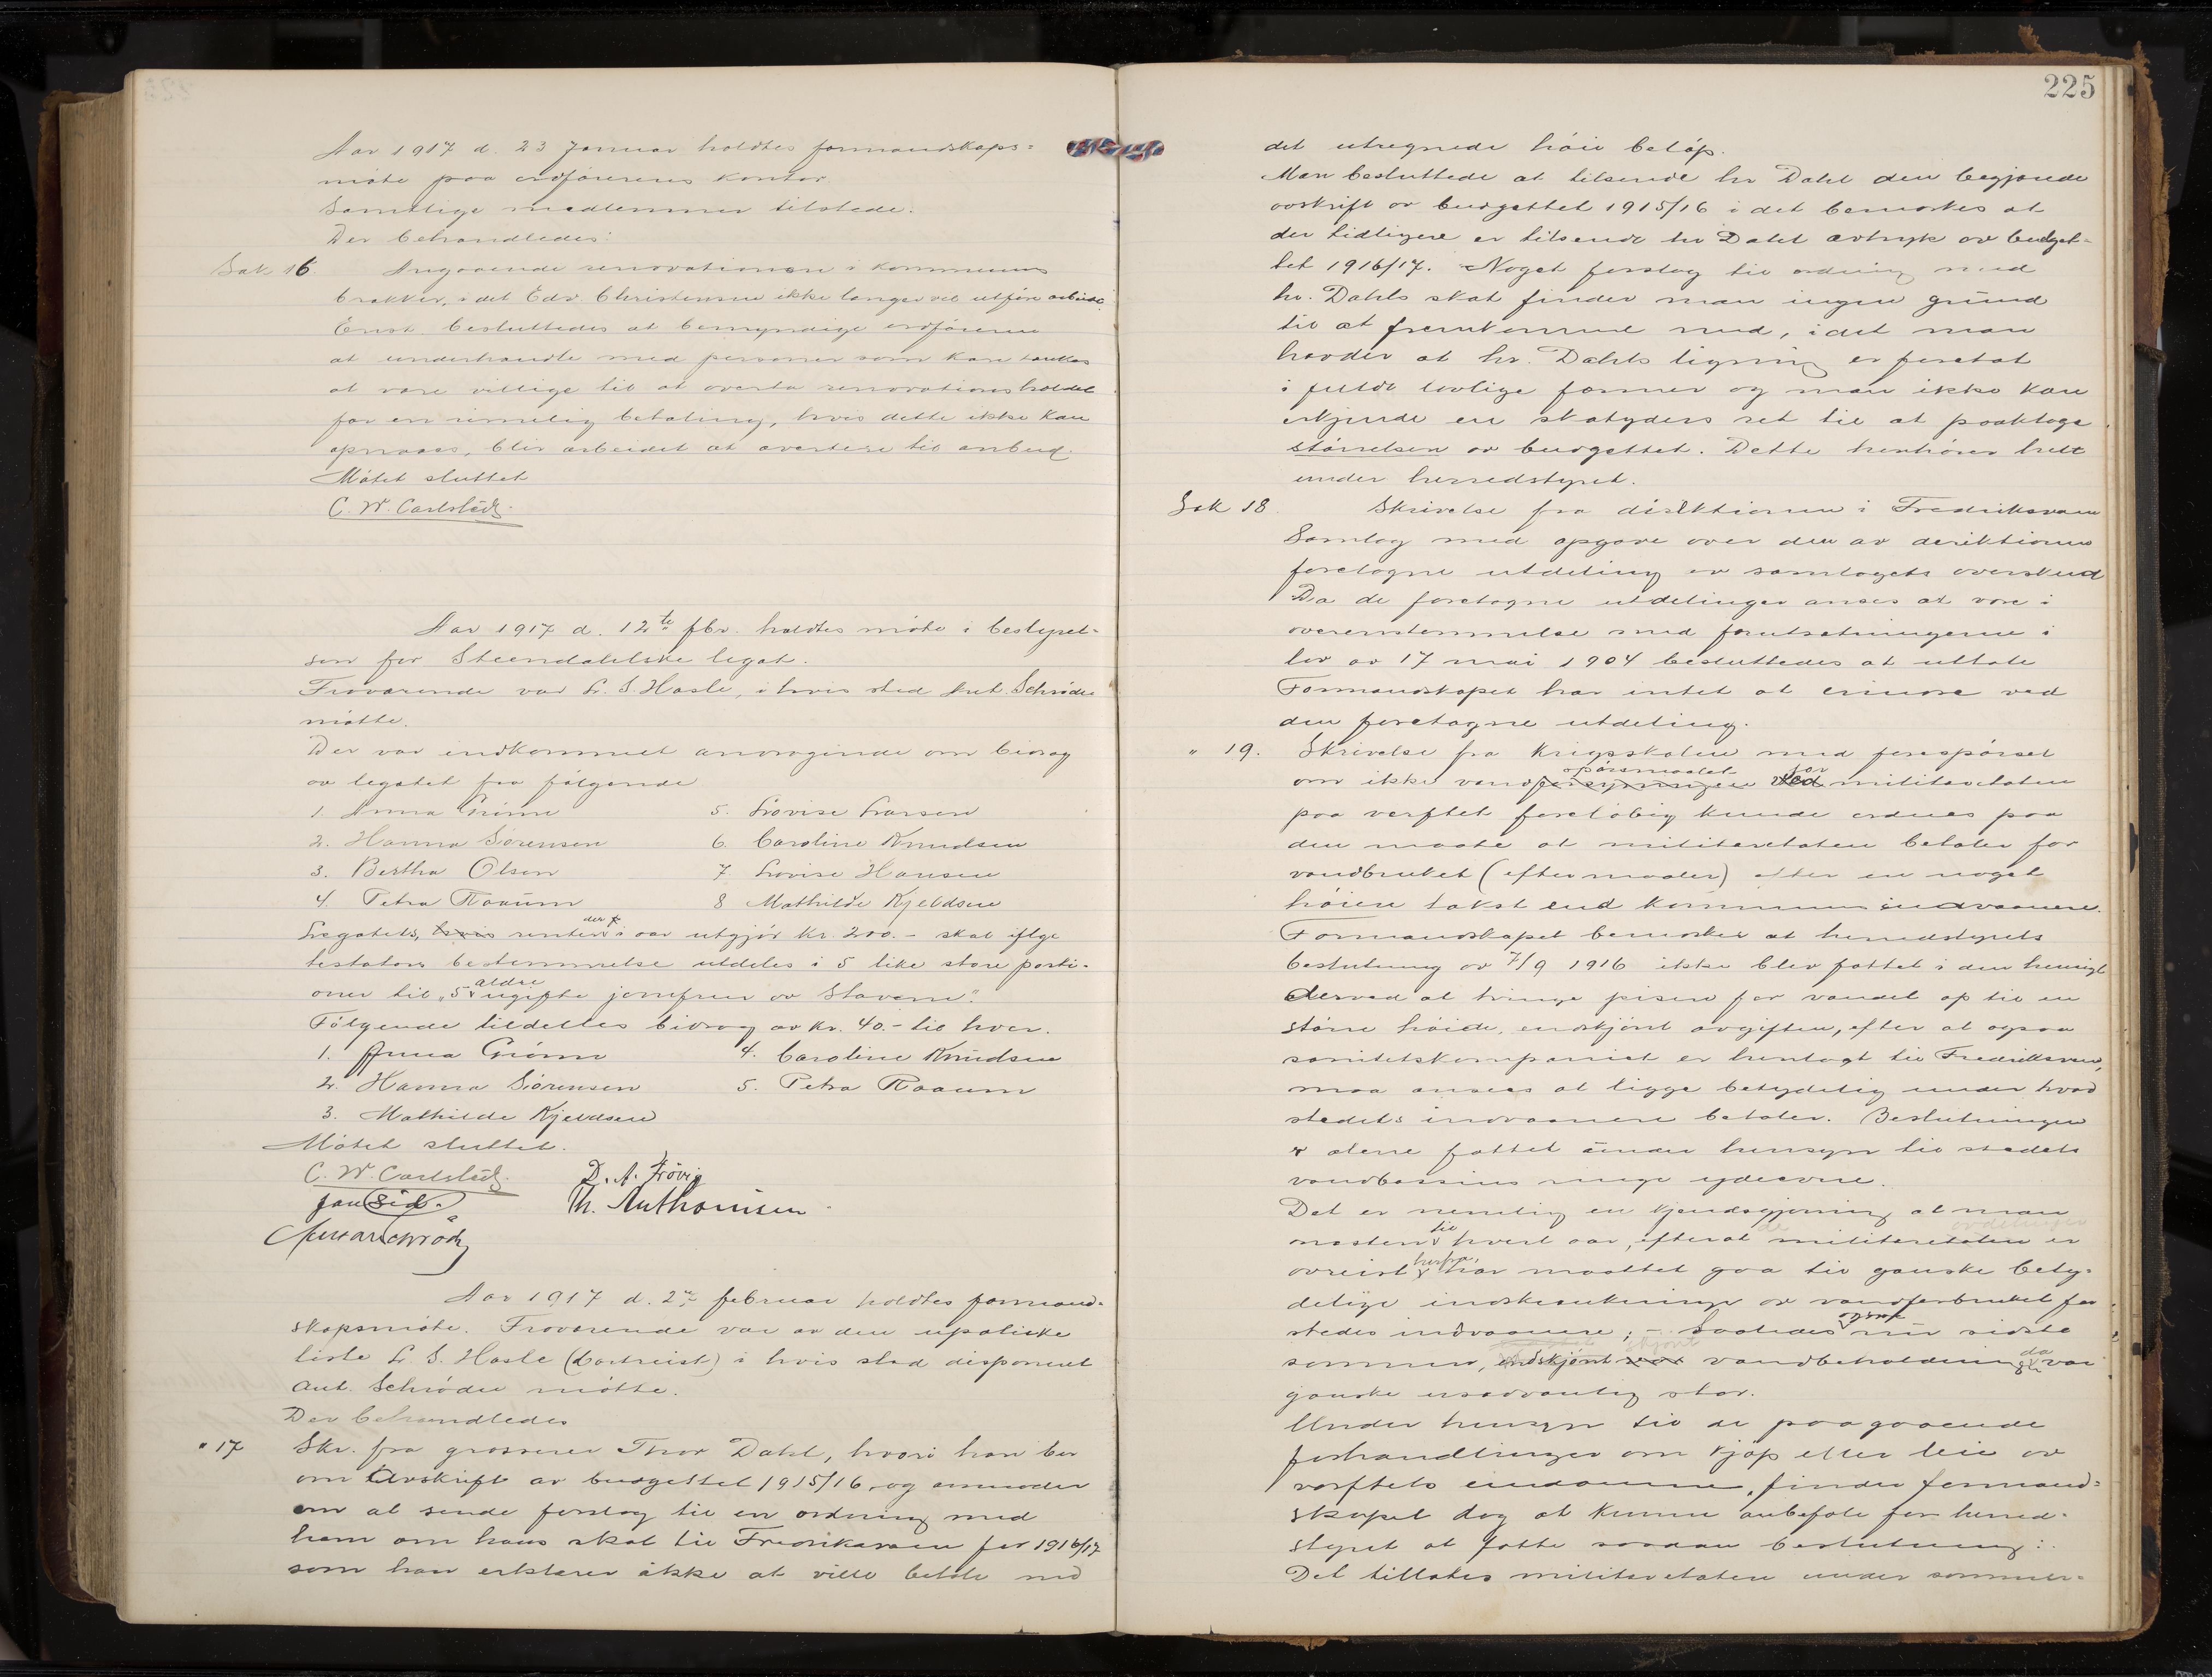 Aar 1917 d. 23 Januar holdtes formandskaps-
møte paa ordførerens kontor.
Samtlige medlemmer tilstede.
Der behandledes:
Sak 16. Angaaende renovationen i kommunens
brakker, idet Edv. Christensen ikke længer vil utføre arbeidet.
Enst. besluttedes at bemyndige ordføreren
at underhandle med personer som kan tænkes
at være villige til at overta renovationsholdet
for en rimelig betaling, hvis dette ikke kan
opnaaes, blir arbeidet at avertere til anbud.
Møtet sluttet
C. W. Carlstedt.
Aar 1917 d. 12te fbr. holdtes møte i bestyrel-
sen for Steendahlske legat.
Fraværende var L. S. Hasle, i hvis sted Ant. Schrøder
møtte.
Der var indkommet anraagende om bidrag
av legatet fra følgende
1. Anna Grønn 5. Lovise Larsen
2. Hanna Sørensen 6. Caroline Knudsen
3. Bertha Olsen 7. Lovise Hansen
4. Petra Raaum 8 Mathilde Kjeldsen
Legatets, hvis renter der i aar utgjør kr. 200.- skal iflge
testators bestemmelse utdeles i 5 like store porti-
oner til "5 ældre ugifte jomfruer av Stavern".
Følgende tildeltes bidrag av kr. 40.- til hver.
1. Anna Grønn 4. Caroline Knudsen
2. Hanna Sørensen 5. Petra Raaum
3. Mathilde Kjeldsen
Møtet sluttet.
C. W. Carlstedt. D. A. Frövig
Th. Anthonisen
Aar 1917 d. februar holdtes formand-
skapsmøte. Fraværende var av den upolitiske
liste L. S. Hasle (bortreist) i hvis sted disponent
Ant. Schrøder møtte.
Der behandledes
" 17 Skr. fra grosserer Thor Dahl, hvori han ber
om Avskrift av budgettet 1915/16, og anmoder
om at sende forslag til en ordning med
ham om hans skat til Fredriksværn for 1916/17
som han erklærer ikke at ville betale med
225
det utregnede høie beløp.
Man besluttede at tilsende hr Dahl den begjærede
avskrift av budgettet 1915/16 i det bemerkes at
der tidligere er tilsendt hr Dahl avtryk av budget-
tet 1916/17. Noget forslag til ordning med
hr. Dahls skat finder man ingen grund
til at fremkomme med, idet man
hævder at hr. Dahls ligning er foretat
i fuldt lovlige former og man ikke kan
erkjende en skatyders ret til at paaklage
størrelsen av budgettet. Dette henhører helt
under herredstyret.
Sak 18. Skrivelse fra direktionen i Fredriksværn
Samlag med opgave over den av direktionen
foretagne utdeling av samlagets overskud
Da de foretagne utdelinger anses at være i
overenstemmelse med forutsetningerne i
lov av 17 mai 1904 besluttedes at uttale
Formandskapet har intet at erindre ved
den foretagne utdeling.
" 19. Skrivelse fra Krigsskolen med forespørsel
om ikke vandforsyningen spørsmaalet ved for militæretaten
paa verftet foreløbig kunde ordnes paa
den maate at militæretaten betaler for
vandbruket (efter maaler) efter en noget
høiere takst end kommunens indvaanere.
Formandskapet bemerker at herredstyrets
beslutning av 7/9 1916 ikke blev fattet i den hensigt
derved at tvinge prisen for vandet op til en
større høide, endskjønt avgiften, efter at ogsaa
sanitetskompaniet er henlagt til Fredriksværn,
maa ansees at ligge betydelig under hvad
stedets indvaanere betaler. Beslutningen
er alene fattet under hensyn til stedets
vandbassins ringe ydeevne.
Det er nemlig en kjendsgjerning at man
næsten til hvert aar, efterat militæretaten er
avreist herfra, har maattet gaa til ganske bety-
delige indskrænkninger av vandforbruket for
stedets indvaanere; - saaledes ogsaa nu sidste
sommer, endskjønt skjønt vandbeholdningen da var
ganske usædvanlig stor.
Under hensyn til de paagaaende
forhandlinger om kjøp eller leie av
verftets eiendomme, finder formand-
skapet dog at kunne anbefale for herred-
styret at fatte saadan beslutning:
Det tillates militæretaten under sommer-